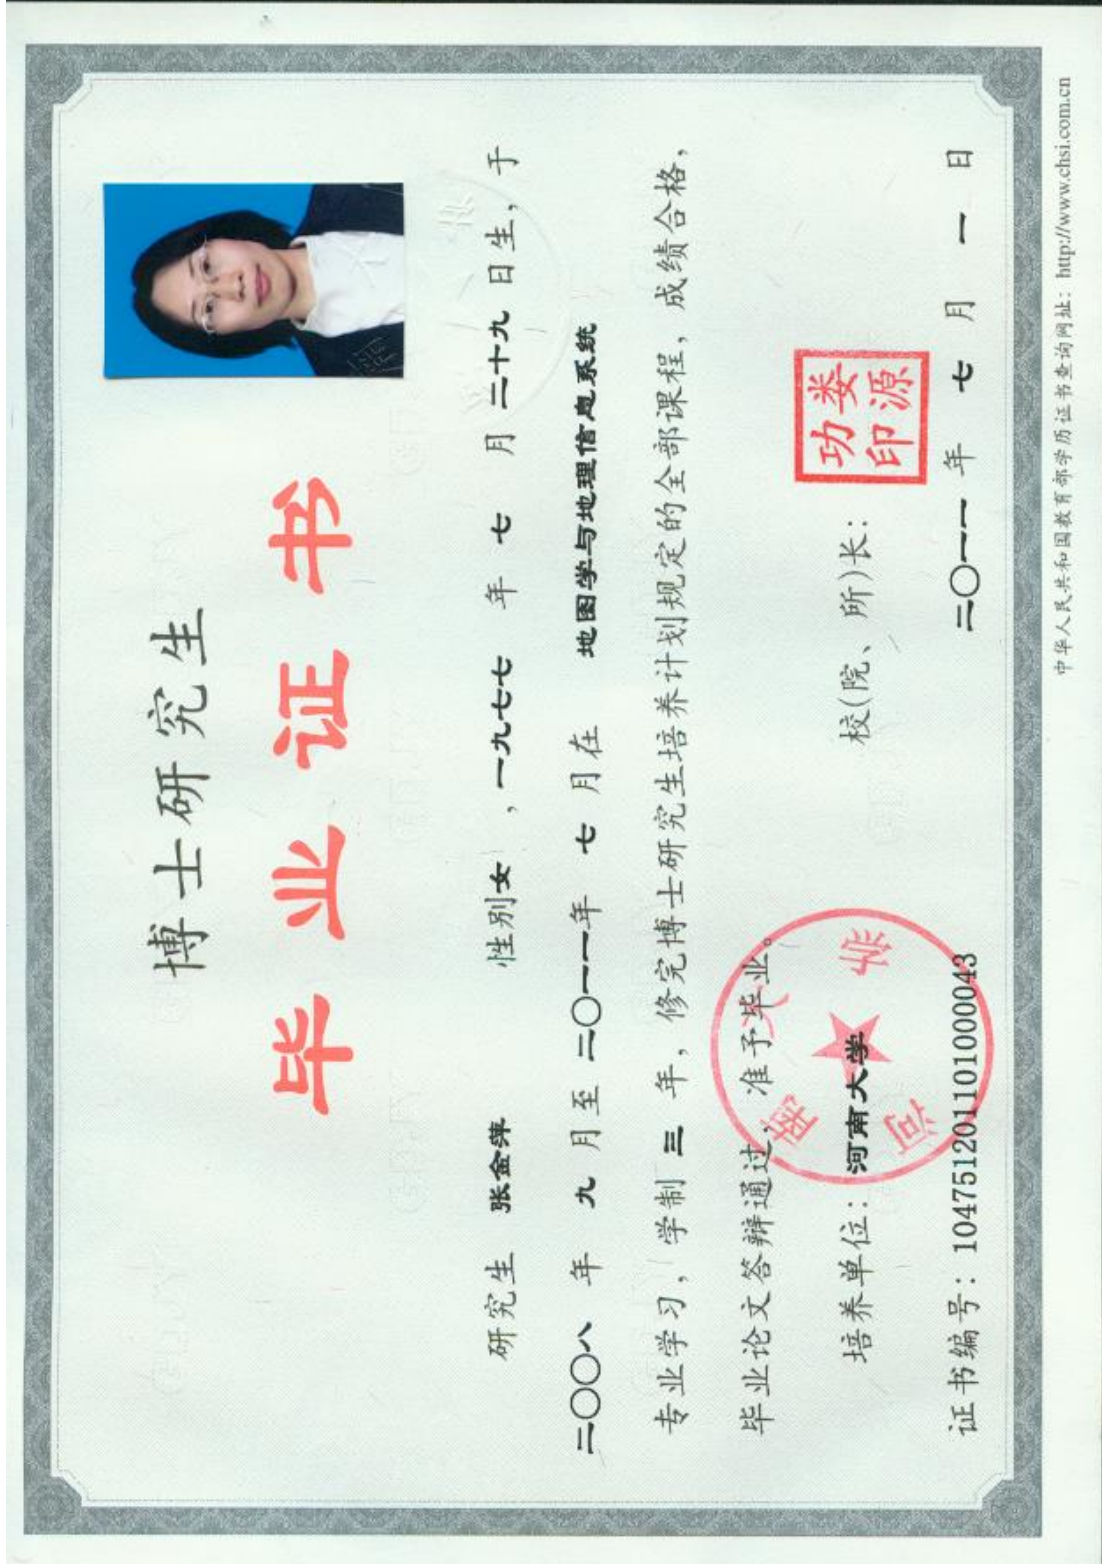 博士研究生
毕业证书
研究生 张金萍 性别女，一九七七 年 七 月 二十九 日生，于
二〇〇八 年 九 月至 二〇一一年 七 月在 地图学与地理信息系统
专业学习，学制 三 年，修完博士研究生培养计划规定的全部课程，成绩合格，
毕业论文答辩通过，准予毕业。
培养单位：河南大学 校(院、所)长：
娄源
功印
河南大学
证书编号：104751201101000043 二〇一一 年 七 月 一 日
中华人民共和国教育部学历证书查询网址：http://www.chsi.com.cn